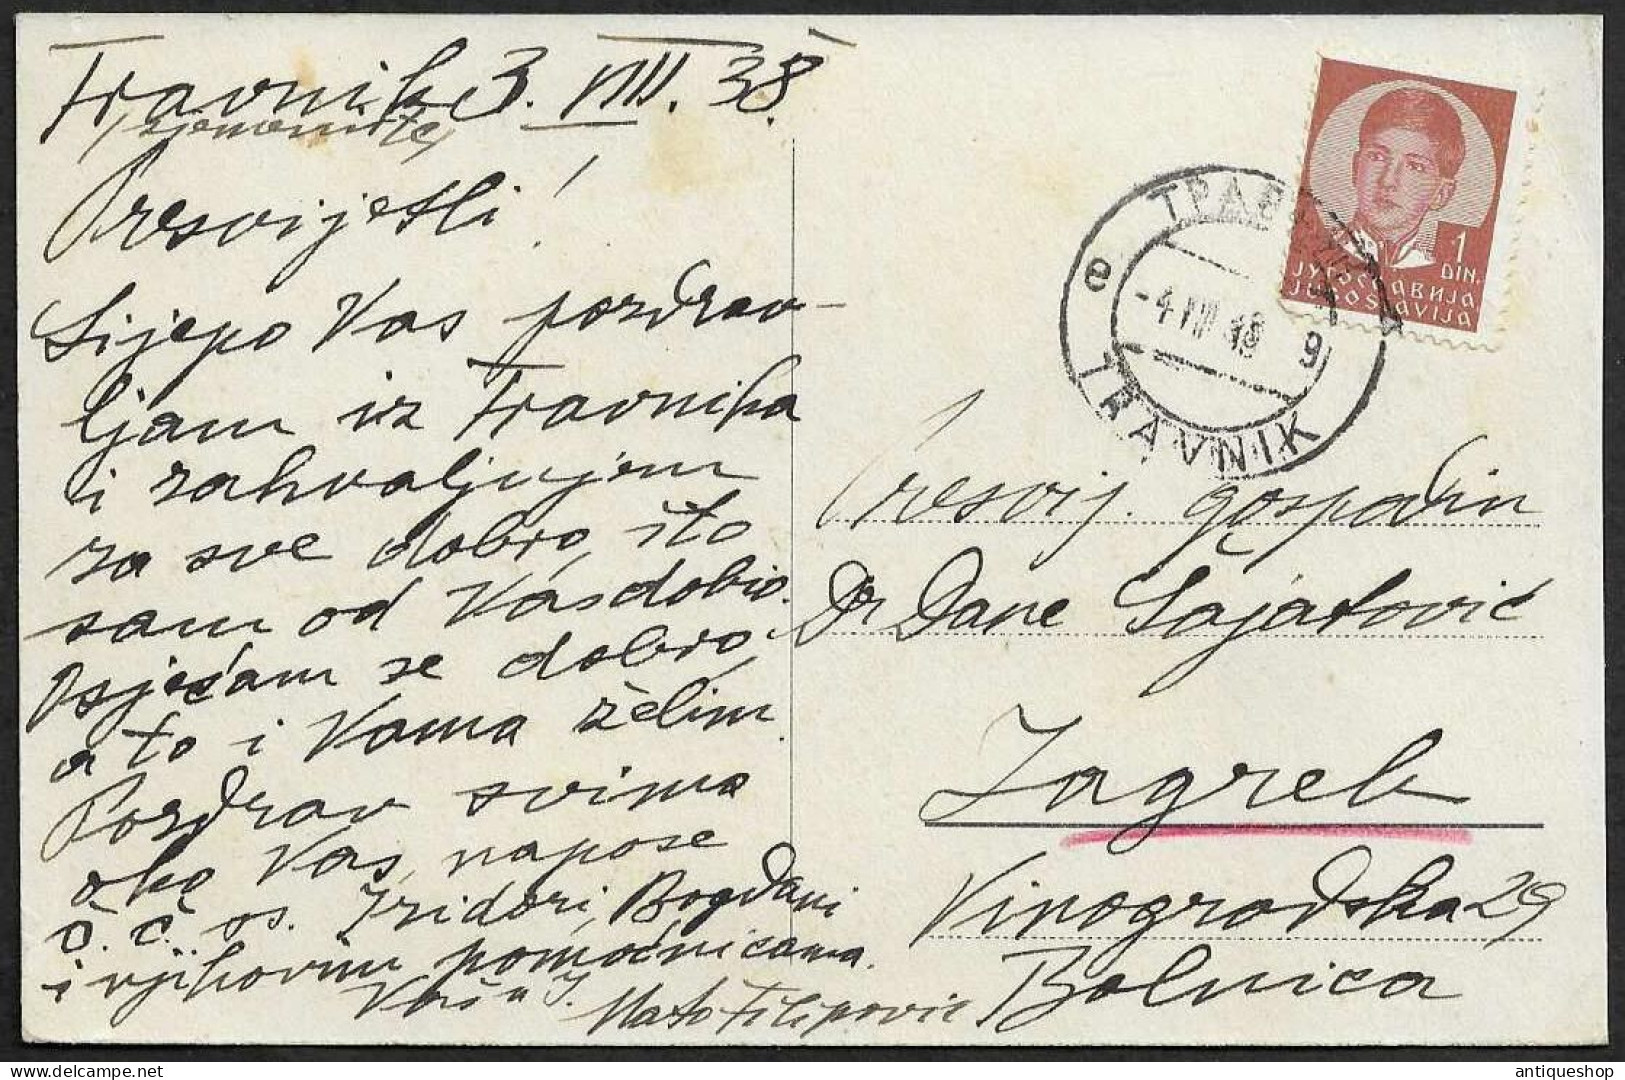 Travnik 3. VIII. 38.
/sjemenište/
Presvijetli!
Lijepo Vas pozdrav-
ljam iz Travnika
i zahvaljujem
za sve dobro, što
sam od Vas dobio.
Osjećam se dobro,
a to i Vama želim.
Pozdrav svima
oko Vas, napose
č. č. ss. Izidori, Bogdani
i njihovim pomoćnicama.
Vaš u I.
Mato Filipović
1
DIN.
ЈУГОСЛАВИЈА
JUGOSLAVIJA
ТРАВНИК
e -4 VIII 38 9
TRAVNIK
Presvij. gospodin
Dr Dane Šajatović
Zagreb
Vinogradska 29
Bolnica
antiqueshop